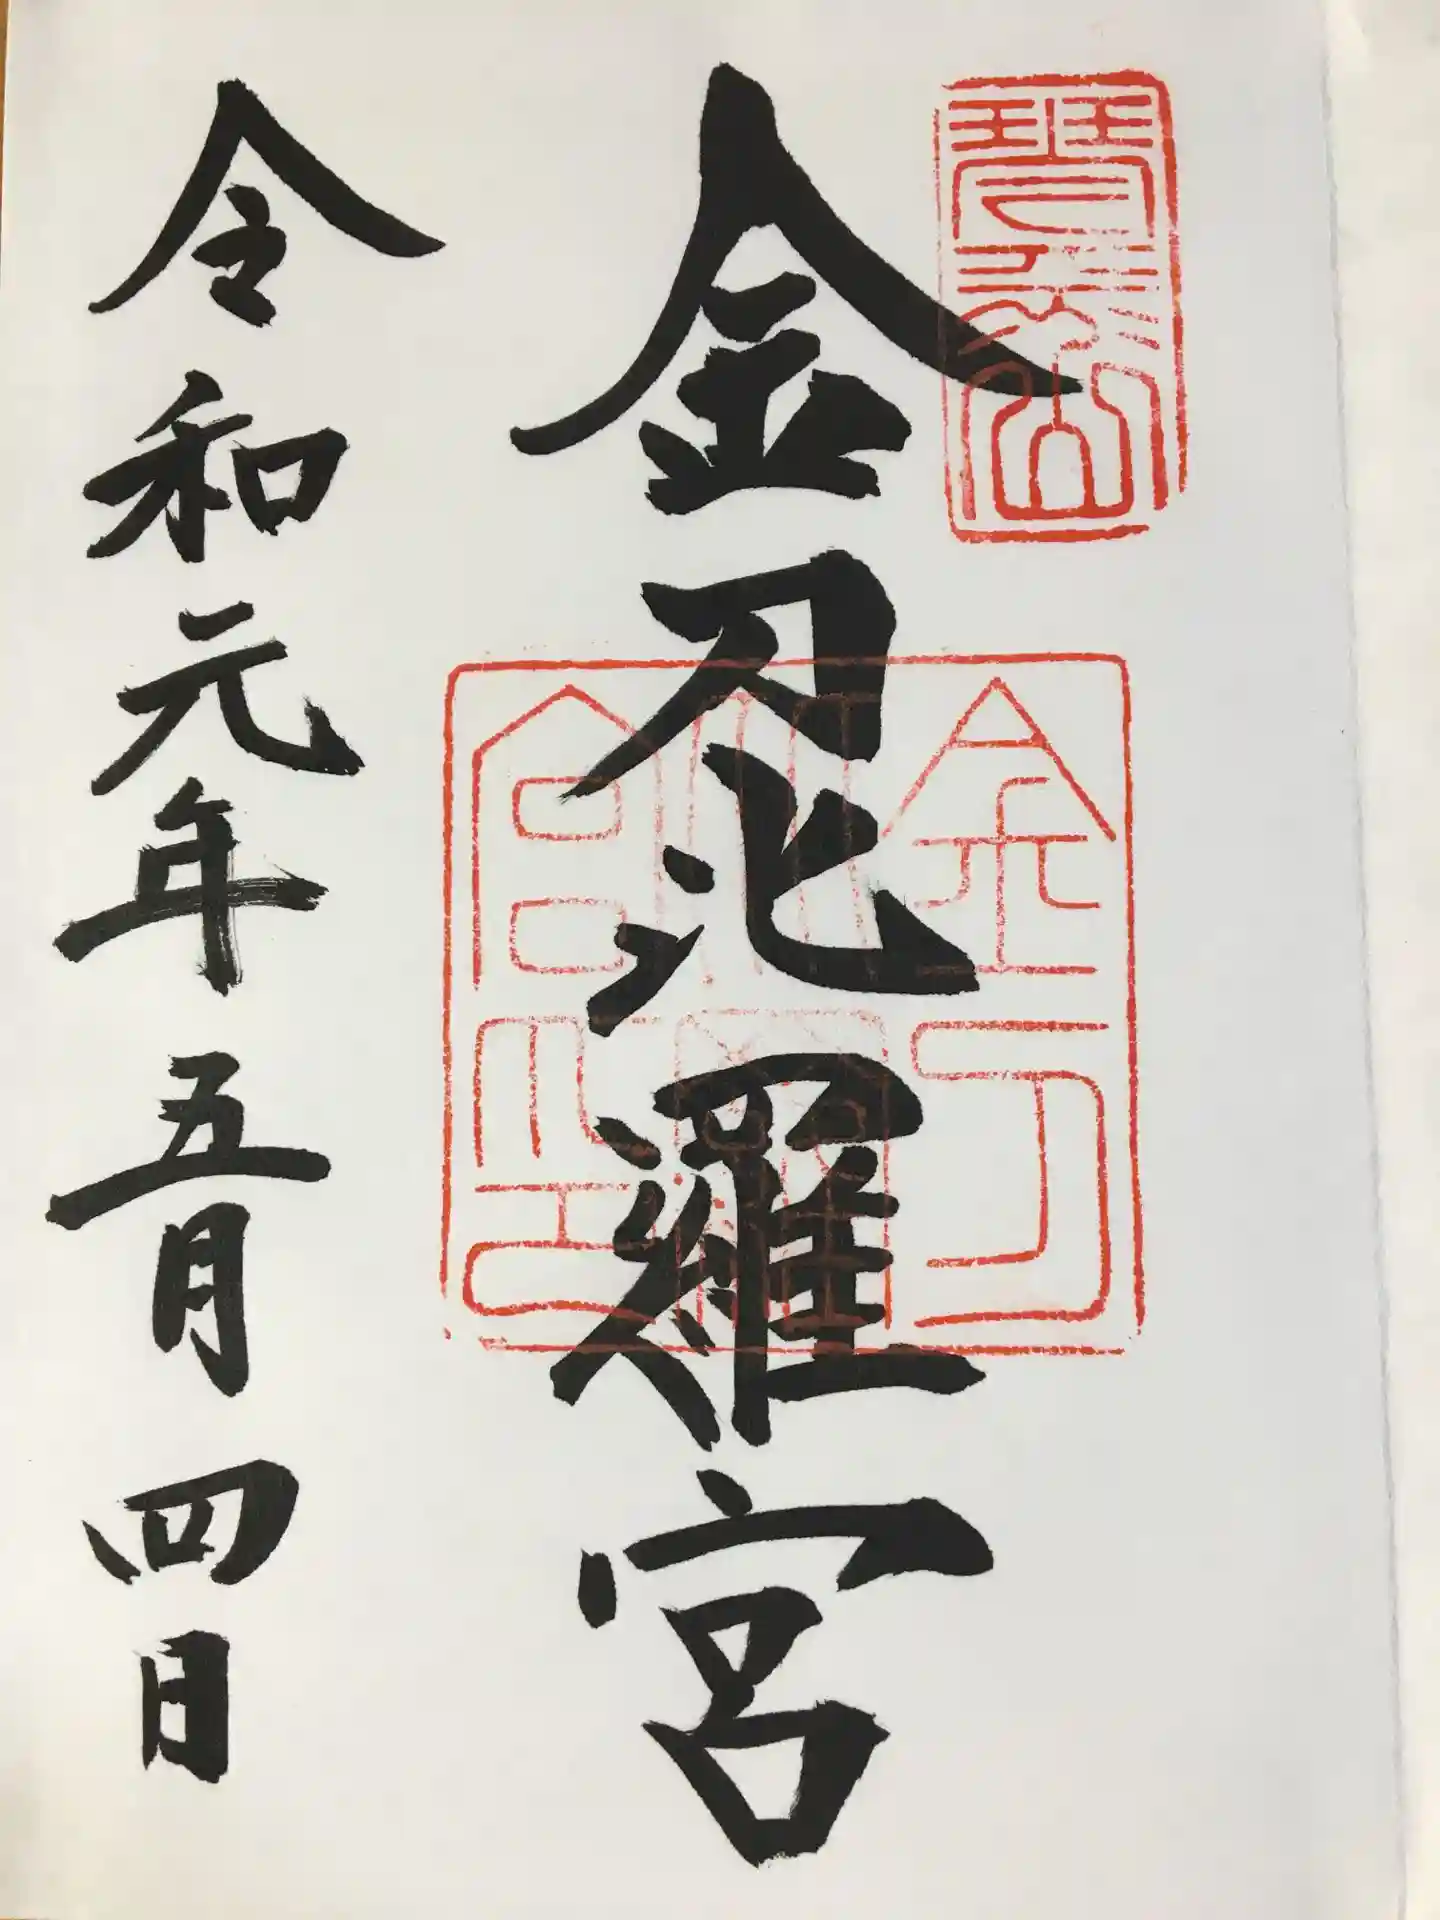 琴平山
金刀比羅宮
金刀比羅宮印
令和元年五月四日